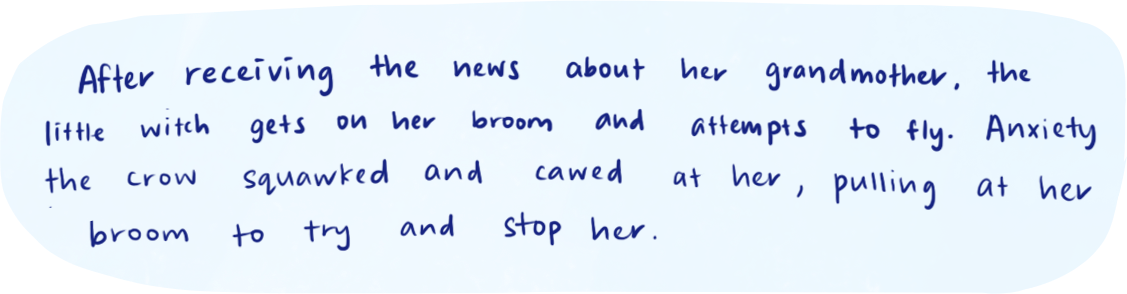 After receiving the news about her grandmother, the
little witch gets on her broom and attempts to fly. Anxiety
the crow squawked and cawed at her, pulling at her
broom to try and stop her.